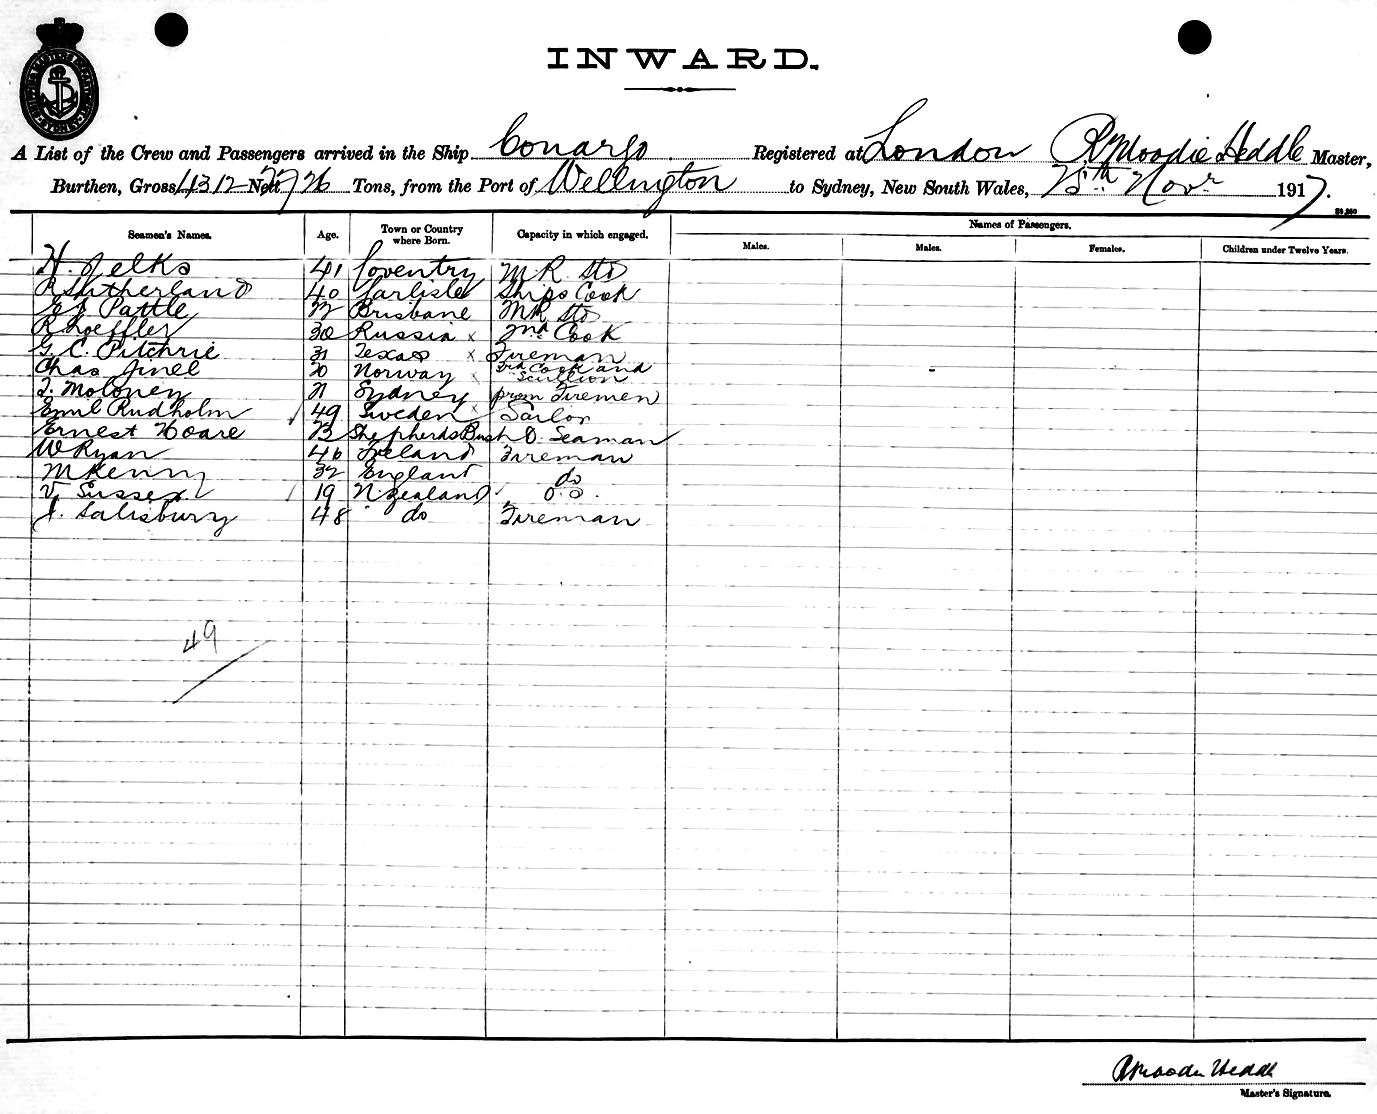 INWARD.
A List of the Crew and Passengers arrived in the Ship Conargo Registered at London R Moodie Heddle Master,
Burthen, Gross 4312 Nett 2726 Tons, from the Port of Wellington to Sydney, New South Wales, 25th Novr 1917.
Seamen's Names. Age. Town or Country where Born. Capacity in which engaged. Names of Passengers.
Males. Males. Females. Children under Twelve Years.
H. Jelks 41 Coventry M R Std
R Sutherland 40 Carlisle Ships Cook
Pattle 22 Brisbane M R Std
R 30 Russia x 2nd Cook
G. C. Pitchrie 31 Texas x Fireman
Chas Jinel 20 Norway x 3rd Cook and Scullion
T. Moloney 21 Sydney from Firemen
Emil Rudholm 49 Sweden x Sailor
Ernest Hoare 23 Shepherds Bush O. Seaman
W Ryan 46 Ireland Fireman
M Kenny 32 England do
V. Sussex 19 N. Zealand O.S.
J. Salisbury 48 do Fireman
49
R Moodie Heddle
Master's Signature.